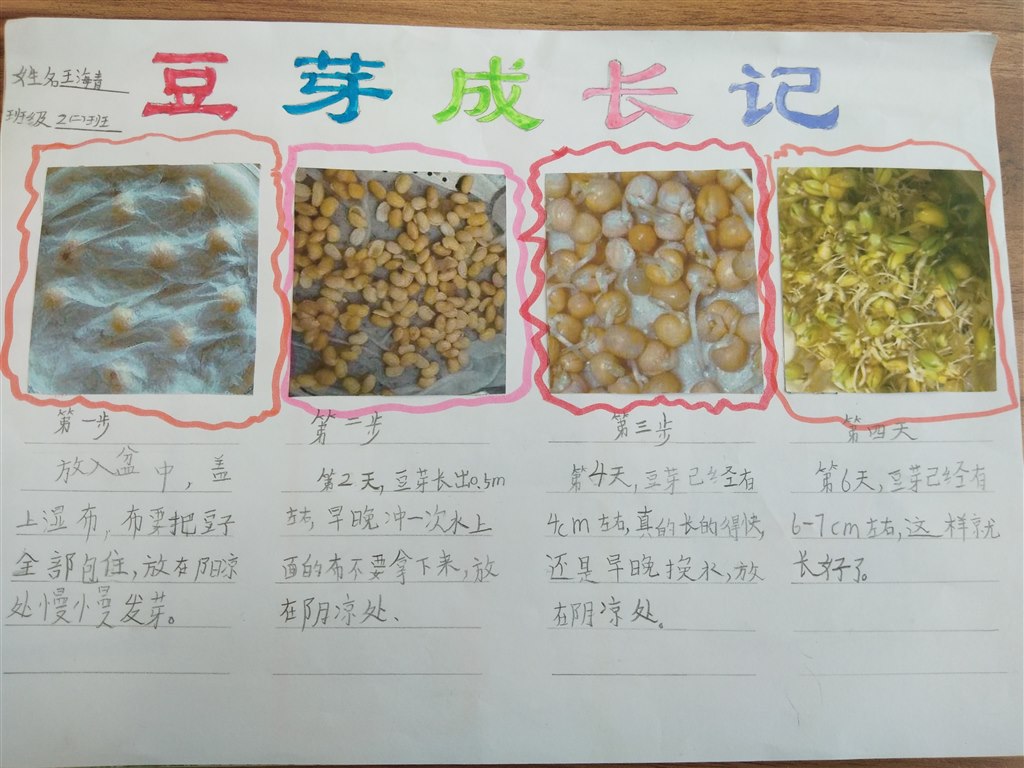 豆芽成长记
姓名王海青
班级2(二)班
第一步
放入盆中,盖
上湿布,布要把豆子
全部包住,放在阴凉
处慢慢发芽。
第二步
第2天,豆芽长出0.5m
左右,早晚冲一次水上
面的布不要拿下来,放
在阴凉处、
第三步
第4天,豆芽已经有
4cm左右,真的长的得快,
还是早晚换水,放
在阴凉处。
第四天
第6天,豆芽已经有
6-7cm左右,这样就
长好了。